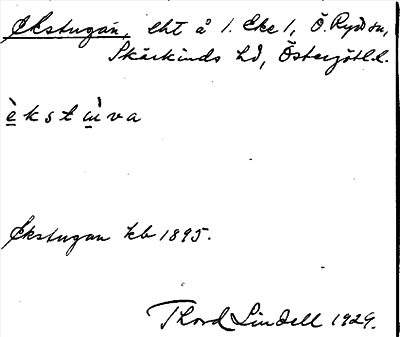 Ekstugan, lht å 1. Eke 1, Ö. Ryd sn,
Skärkinds hd, Östergötl. l.
è k s t ù v a
Ekstugan kb 1895.
Thord Lindell 1929.